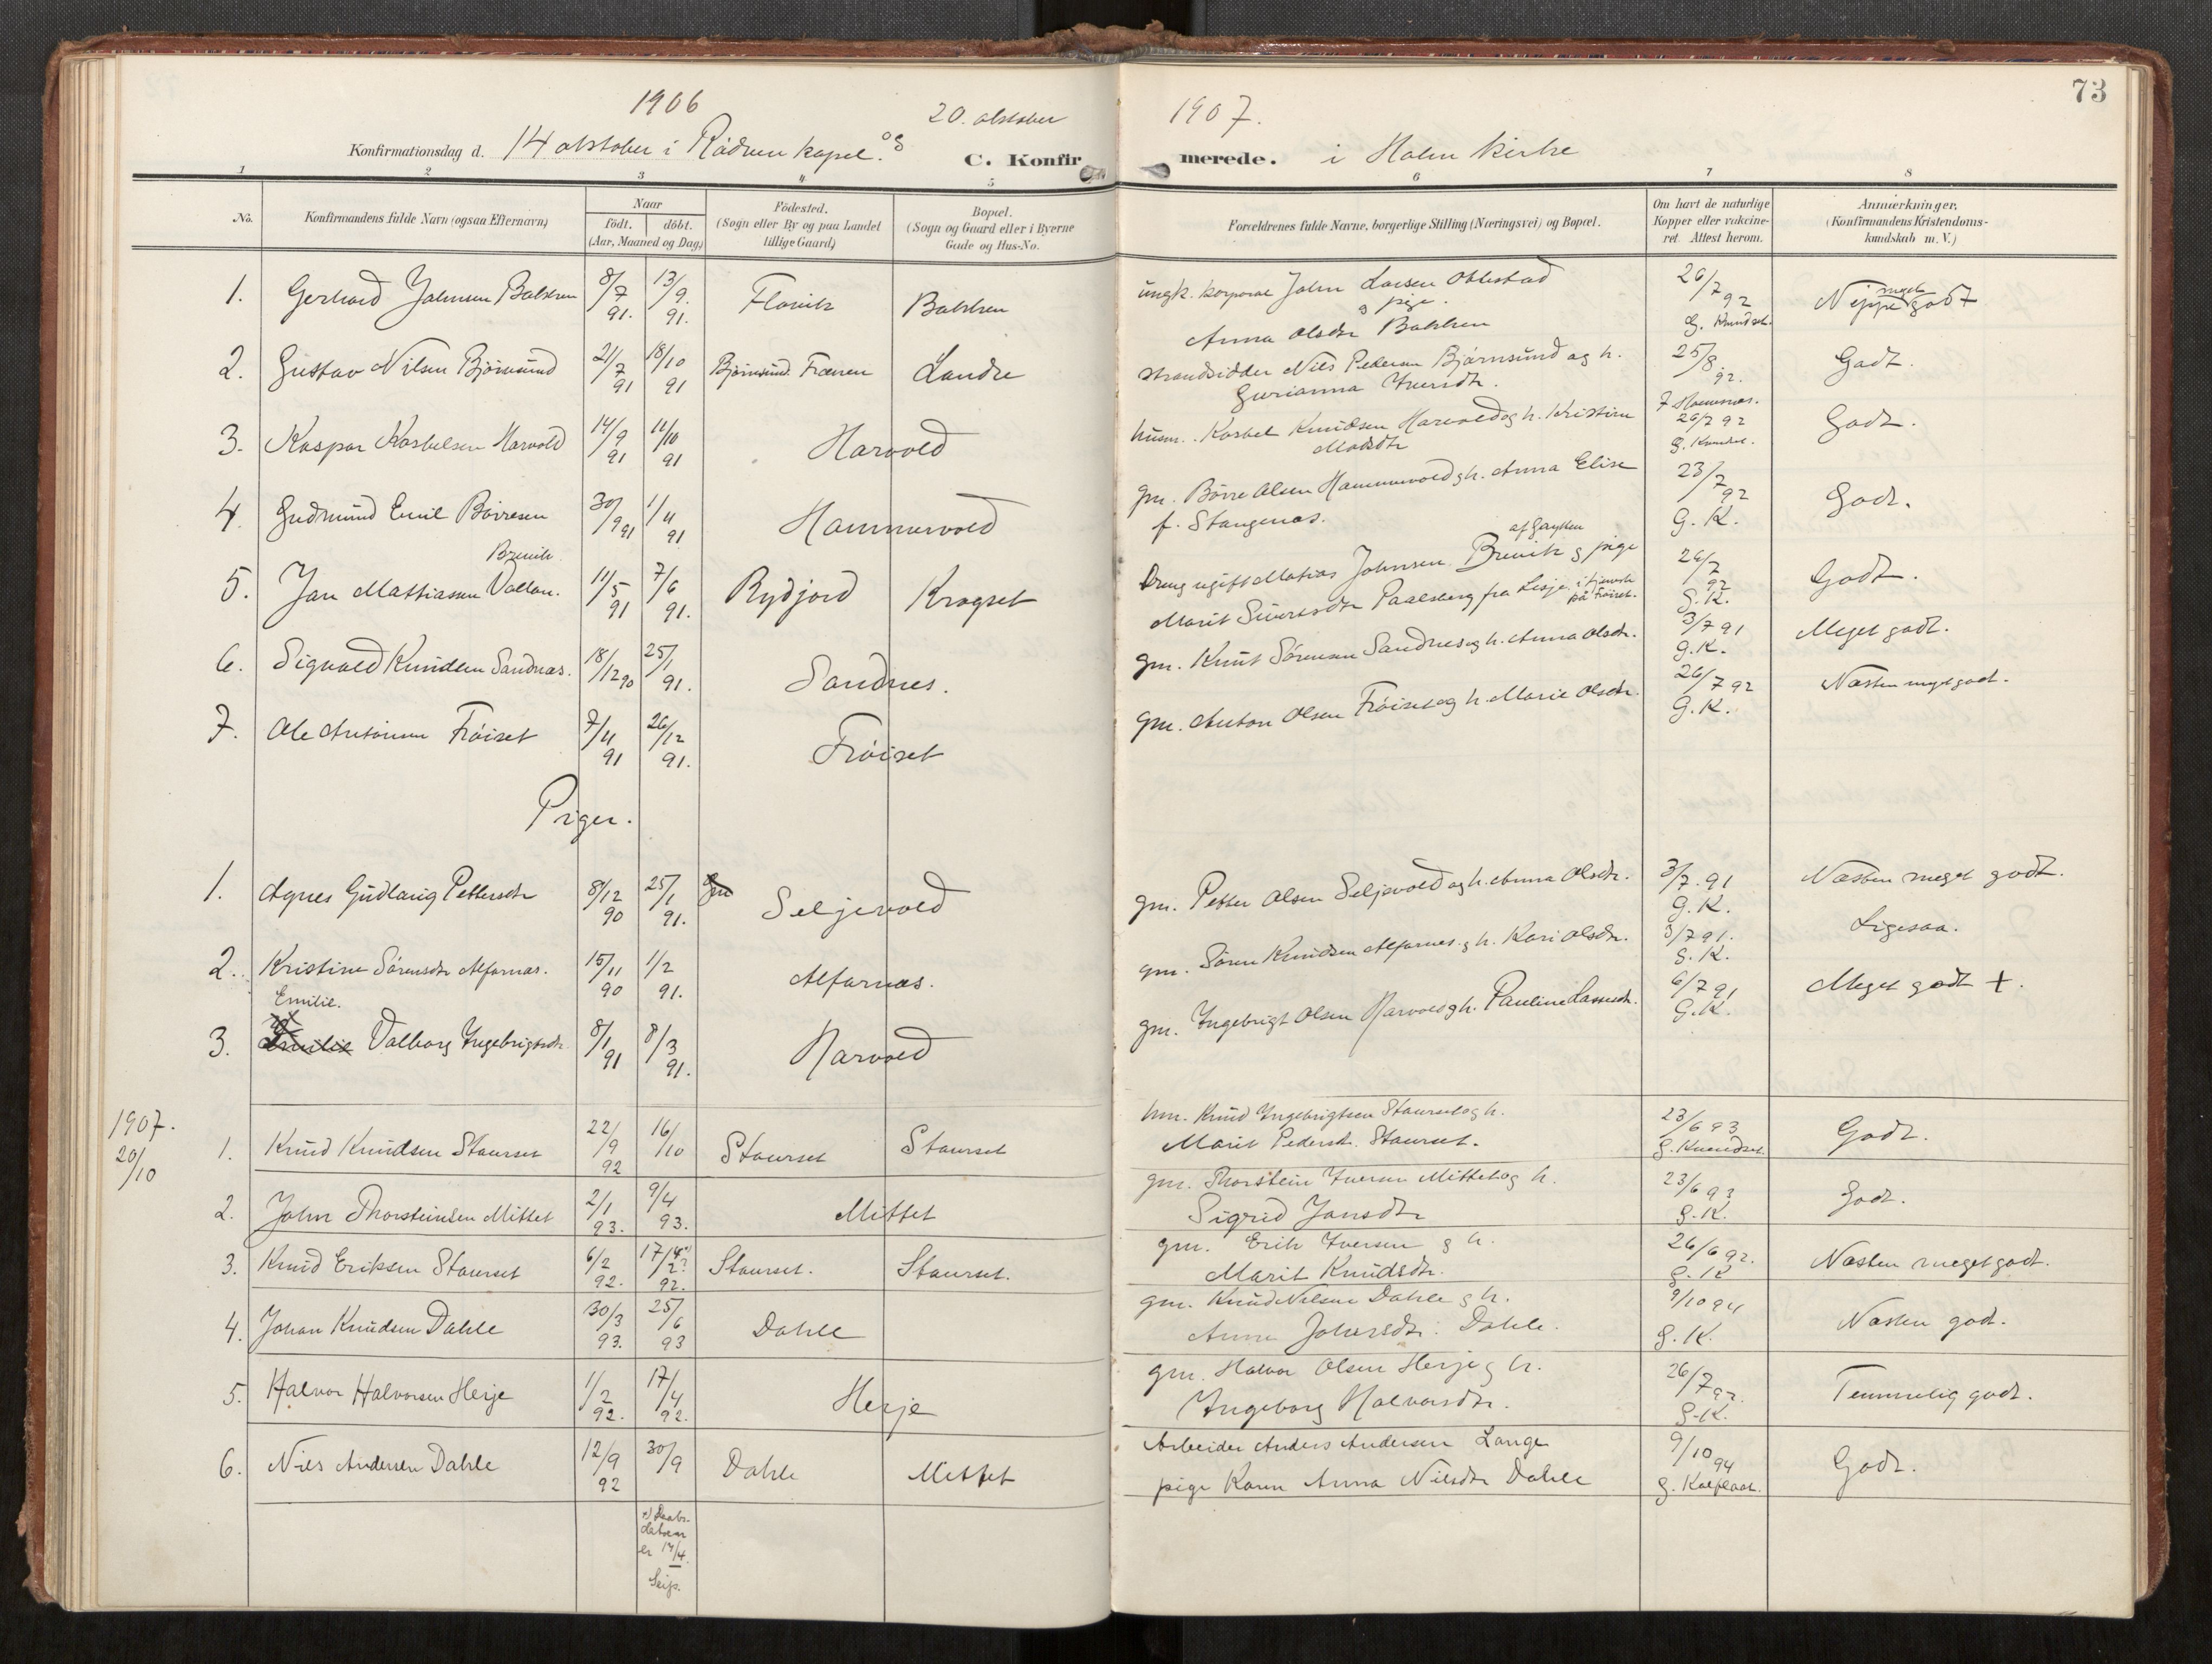 73
1906
20. oktober
1907.
Konfirmationsdag d. 14 oktober i Rødven kapel. og
C. Konfirmerede. i Holm kirke
1 2 3 4 5 6 7 8
No.
Konfirmandens fulde Navn (ogsaa Efternavn)
Naar
født. døbt.
(Aar, Maaned og Dag)
Fødested.
(Sogn eller By og paa Landet
tillige Gaard)
Bopæl.
(Sogn og Gaard eller i Byerne
Gade og Hus-No.
Forældrenes fulde Navne, borgerlige Stilling (Næringsvei) og Bopæl.
Om havt de naturlige
Kopper eller vakcine-
ret. Attest herom.
Anmærkninger.
(Konfirmandens Kristendoms-
kundskab m. V.)
1. Gerhard Johnsen Bakken 8/7 91. 13/9. 91. Flovik Bakken
ungk. korporal John Larsen
og pige.
Anna Olsdtr Bakken
26/7 92
G. Knudsen.
Neppe meget godt
2. Gustav Nilsen Bjørnsund 21/7 91 18/10 91 Bjørnsund. Frænen Landre
strandsidder Nils Pedersen Bjørnsund og h.
Gurianna Iversdtr.
25/8 92.
Godt.
3. Kaspar Harvold 14/9 91 11/10 91 Harvold
husm. Knudsen Harvold og h. Kristine
26/7 92
Godt.
4. Gudmund Emil Børresen 30/9 91 1/11 91 Hammervold
gm. Børre Olsen Hammervold og h. Anna Elise
f. Stangenæs.
23/7 92
G. K.
Godt.
5. Jan Mathiassen Vollan. 11/5 91 7/6 91. Rydjord Krogset
Brevik
Dreng ugift Matias Johnsen Brevik og pige
Marit Sivertsdtr fra Lesje
26/7 92
G. K.
Godt.
6. Sigvald Knudsen Sandnæs. 18/12 90 25/1 91. Sandnes.
gm. Knut Sørensen Sandnes og h. Anna Olsdtr.
3/7 91
G. K.
Meget godt.
7. Ole Antonsen Frøiset 7/11 91 26/12 91. Frøiset
gm. Anton Olsen Frøiset og h. Marie Olsdtr.
26/7 92
G. K.
Næsten meget godt.
Piger.
1. Agnes Gudlaug Pettersdtr 8/12 90 25/1 91. Seljevold
gm. Petter Olsen Seljevold og h. Anna Olsdtr.
3/7. 91
G. K.
Næsten meget godt.
2. Kristine Sørensdtr Alfarnæs. 15/11 90 1/2 91. Alfarnæs.
gm. Søren Knudsen Alfarnes og h. Kari Olsdtr.
3/7 91.
G. K.
Ligesaa.
Emilie.
3. Valborg Ingebrigtsdtr 8/1 91 8/3 91. Harvold
gm. Ingebrigt Olsen Harvold og h. Pauline Lassesdtr.
6/7 91
G. K.
Meget godt +.
1907.
20/10
1. Knud Knudsen Staurset 22/9 92 16/10 Staurset Staurset
hm. Knud Ingebrigtsen Staurset og h.
Marit Pedersdt. Staurset.
23/6 93
G. Knudsen.
Godt.
2. John Thorsteinsen Mittet 2/1 93. 9/4 93. Mittet
gm. Thorstein Iversen Mittet og h.
Sigrid Jonsdtr
23/6 93
G. K.
Godt.
3. Knud Eriksen Staurset 6/2 92. 17/4 92. Staurset. Staurset.
gm. Erik Iversen og h.
Marit Knudsdtr.
26/6 92.
G. K
Næsten meget godt.
4. Johan Knudsen Dahle 30/3 93. 25/6 93 Dahle
gm. Knud Nilsen Dahle og h.
Anne Dahle.
9/10 94
G. K.
Næsten god.
5. Halvor Halvorsen Herje 1/2 92. 17/4 92. Herje
gm. Halvor Olsen Herje og h.
Ingeborg Halvorsdtr.
26/7 92
G. K.
Temmelig godt.
6. Nils Andersen Dahle 12/9 92 30/9 Dahle Mittet
Arbeider Anders Andersen Lange
pige Karen Anna Nilsdtr Dahle
9/10 94
Godt.
x) Daabs-
datoen
er 17/4.